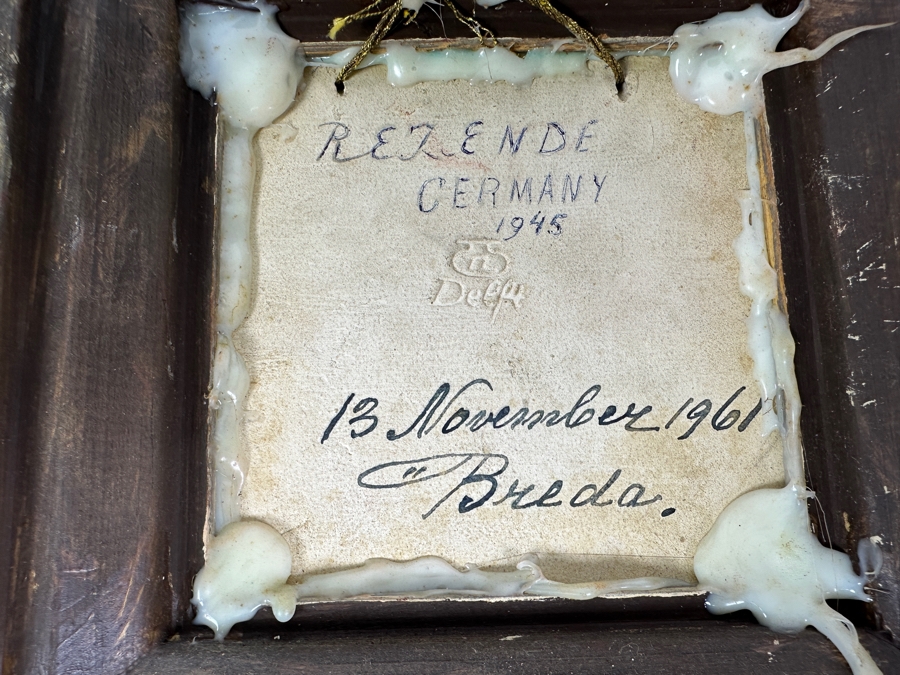 REZENDE
GERMANY
1945
Delft
13 November 1961
Breda.